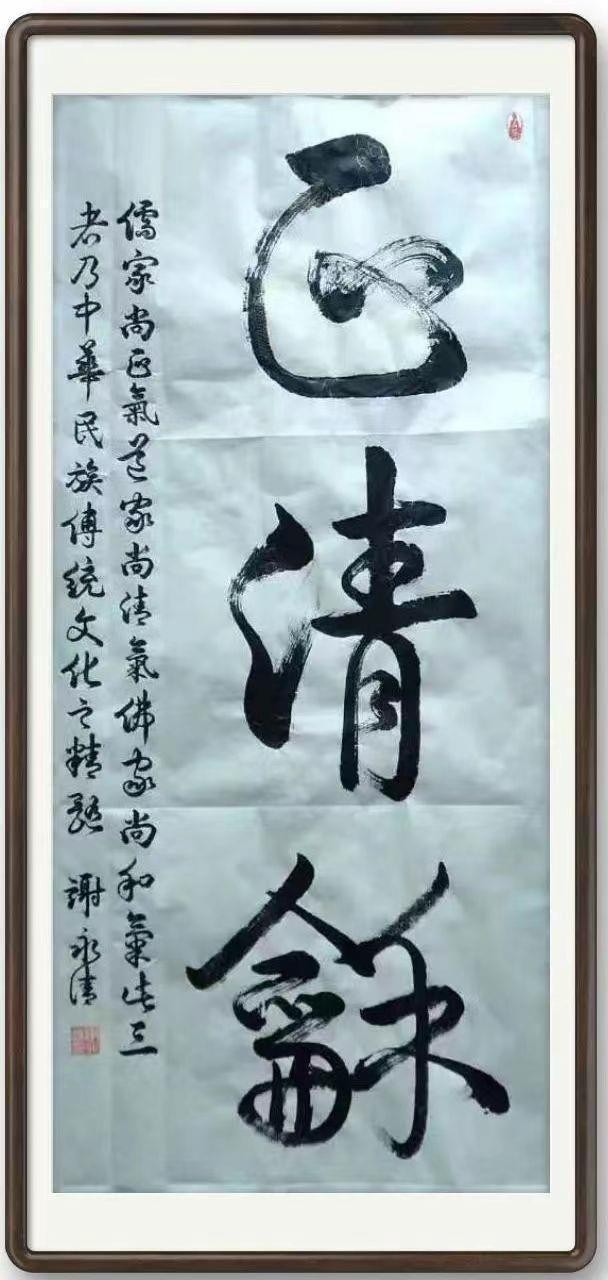 正清龢
儒家尚正氣道家尚清氣佛家尚和氣此三
者乃中華民族傳統文化之精髓
謝永清